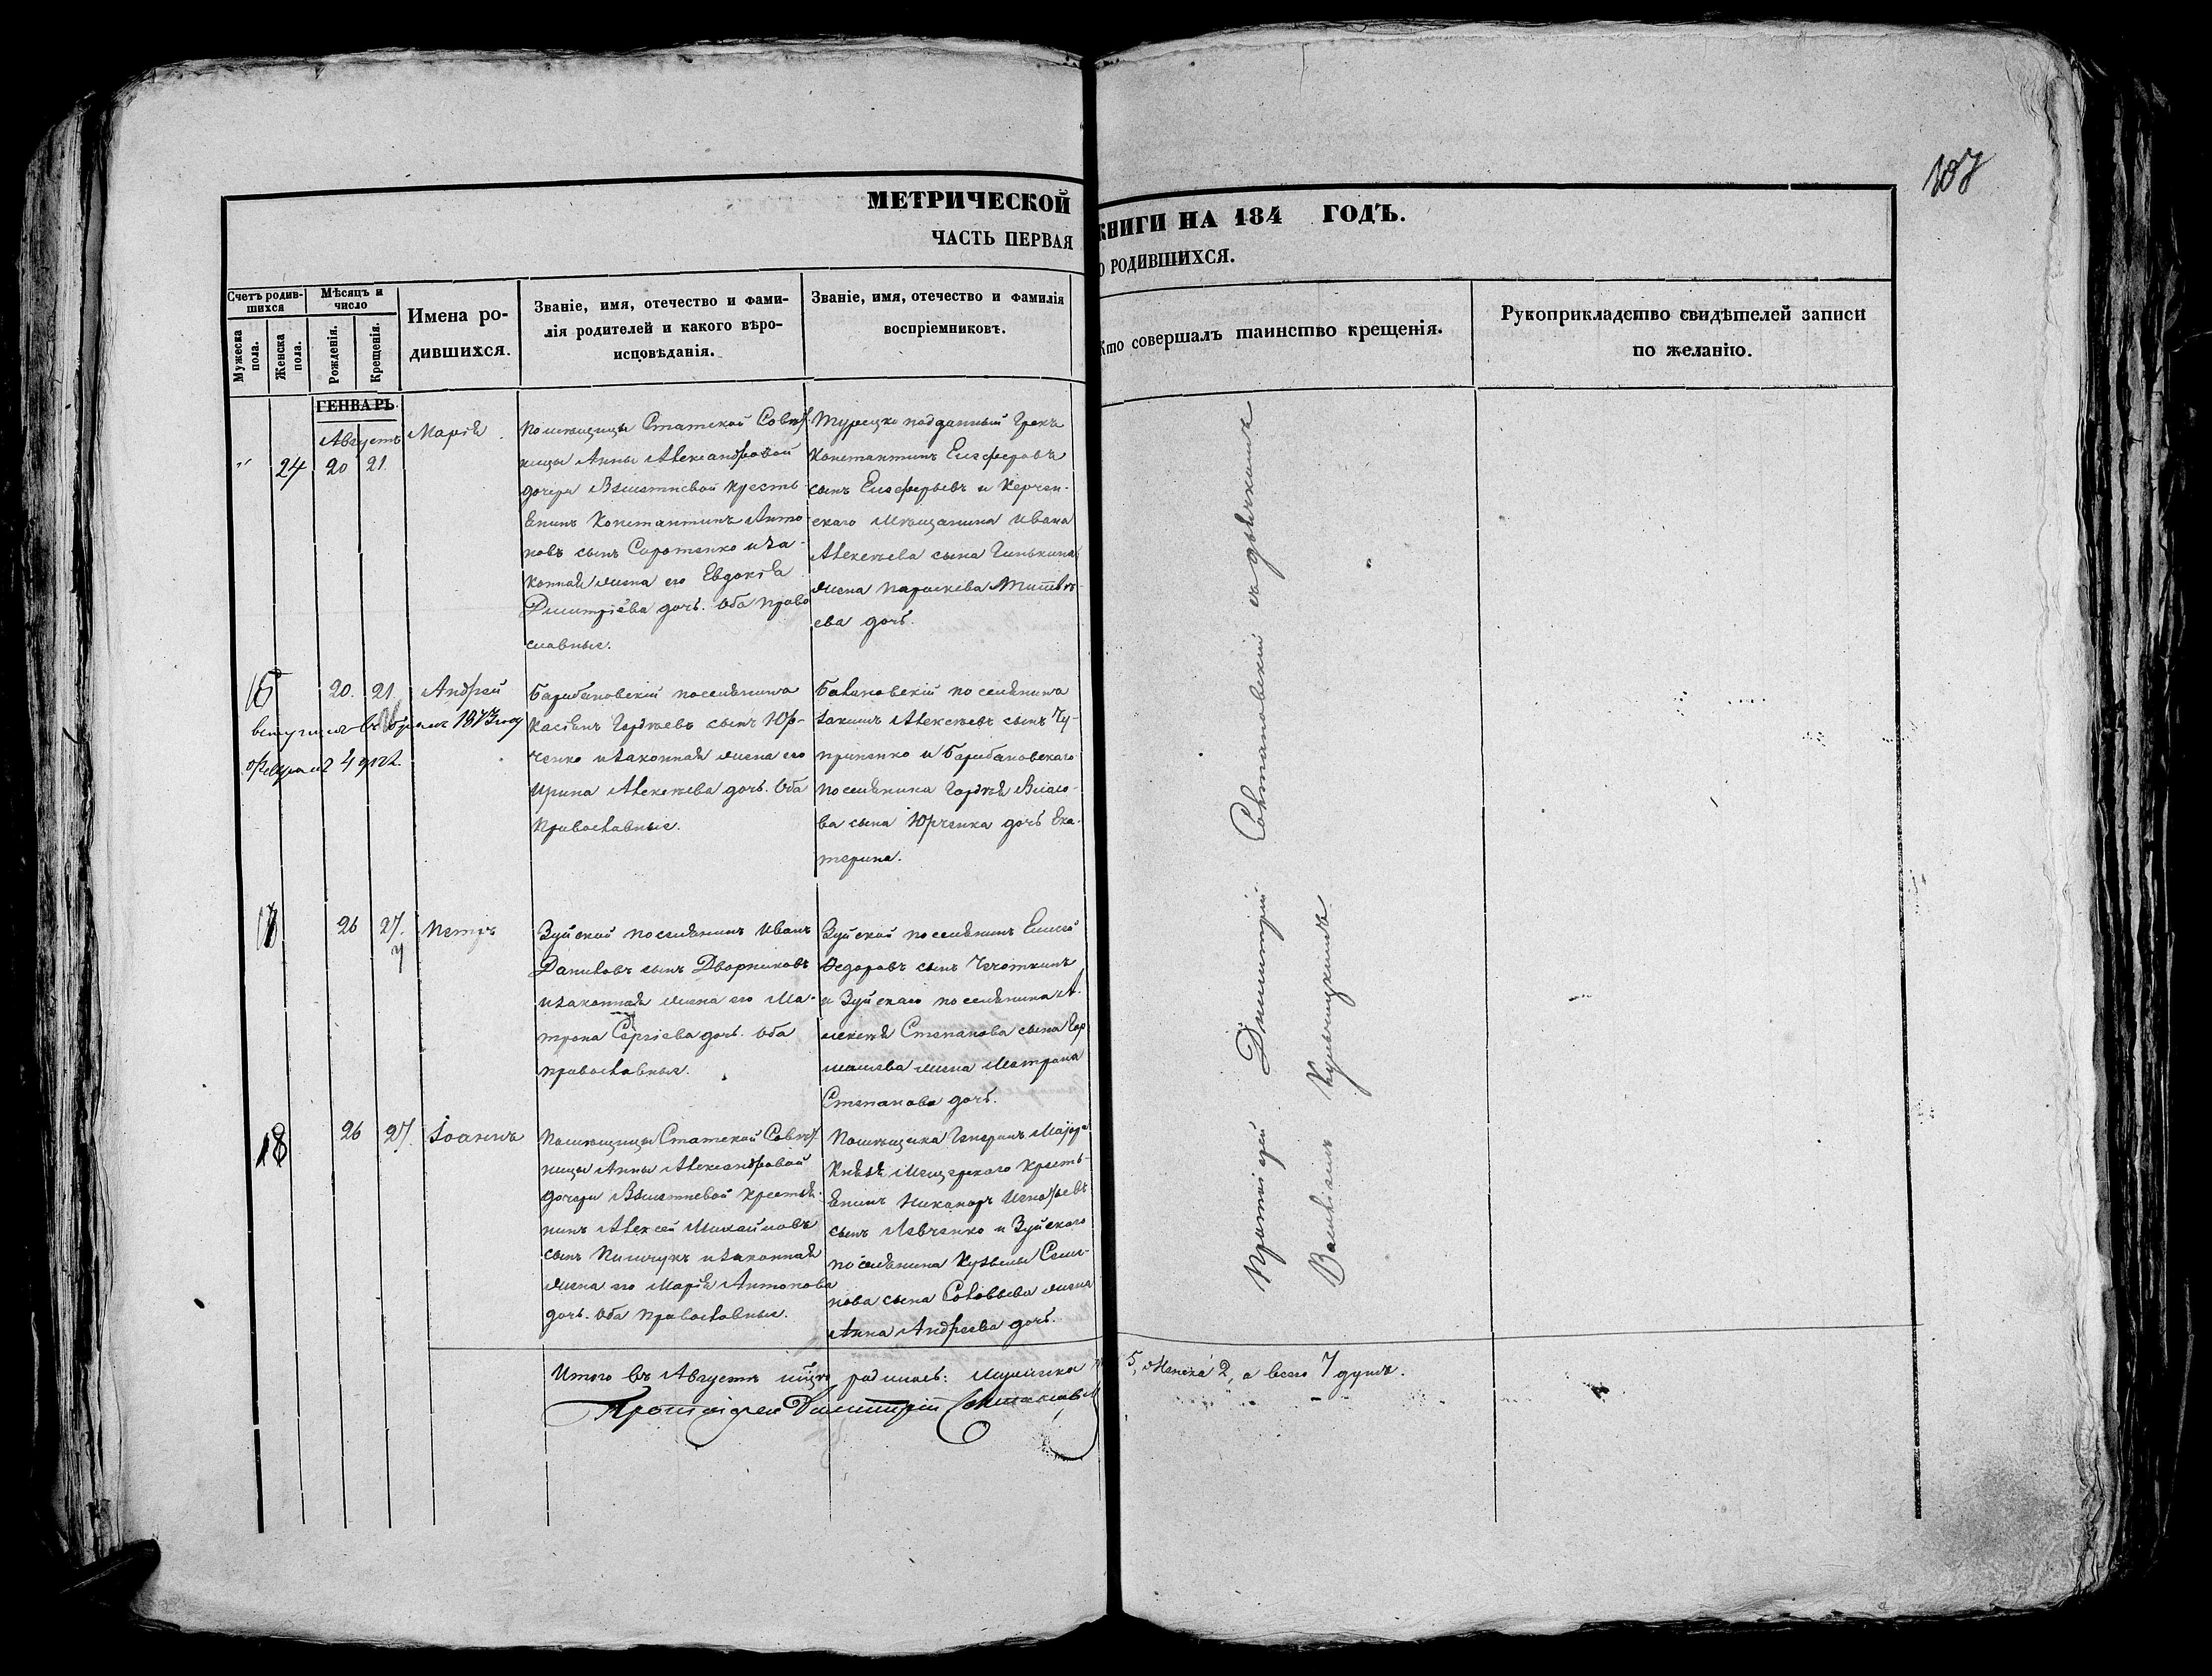 107
МЕТРИЧЕСКОЙ КНИГИ НА 184 ГОДЪ.
ЧАСТЬ ПЕРВАЯ О РОДИВШИХСЯ.
Счетъ родив-
шихся
Мужеска пола.
Женска пола.
Мѣсяцъ и
число
Рожденія.
Крещенія.
Имена ро-
дившихся.
Званіе, имя, отечество и фами-
лія родителей и какого вѣро-
исповѣданія.
Званіе, имя, отечество и фамилія
воспріемниковъ.
Кто совершалъ таинство крещенія.
Рукоприкладство свидѣтелей записи
по желанію.
ГЕНВАРЬ
Августъ
" 24 20 21. Марія
Помѣщицы Статской Совѣт-
ницы Анны Александровой
дочери кресть-
янинъ Константинъ Анто-
новъ сынъ Сиротенко и за-
конная жена его Евдокія
Дмитріева дочь. Оба право
славные.
Турецко подданный Грекъ
Константинъ Елеферовъ
сынъ Елеферьевъ и Керчен-
скаго мѣщанина Ивана
Алексѣева сына
жена Параскева
ева дочь.
16 20. 21. Андрей
вступилъ въ бракъ 1873 году
Февраля 4 дня.
Барабановскій поселянинъ
Касіянъ Гордѣевъ сынъ Юр-
ченко и законная жена его
Ирина Алексѣева дочь. Оба
Православные.
поселянинъ
Іакимъ Алексѣевъ сынъ Чу-
приненко и Барабановскаго
поселянина Гордѣя Власо-
ва сына Юрченка дочь Ека-
терина.
17 26 27. Петръ
Зуйской поселянинъ Иванъ
Даниловъ сынъ Дворниковъ
и законная жена его Ма-
трона Сергіева дочь. Оба
православные.
Зуйской поселянинъ Елисей
Федоровъ сынъ Чечоткинъ
и Зуйскаго поселянина А-
лексѣя Степанова сына
жена Матрона
Степанова дочь.
18 26 27. Іоаннъ
Помѣщицы Статской Совѣт-
ницы Анны Александровой
дочери крестья-
нинъ Алексей Михайловъ
сынъ и законная
жена его Марія Антонова
дочь. Оба православные.
Помѣщика Генералъ Маіора
Князя Мещерскаго кресть-
янинъ Никаноръ Игнатьевъ
сынъ Левченко и Зуйскаго
поселянина Кузьмы Семе-
нова сына Соловьева жена
Анна Андреева дочь.
Протоіерей Димитрій съ дьячкомъ
Василіемъ Кульчицкимъ.
Итого въ Августѣ мцѣ родилось: мужеска 5, женска 2, а всего 7 душъ.
Протоіерей Димитрій